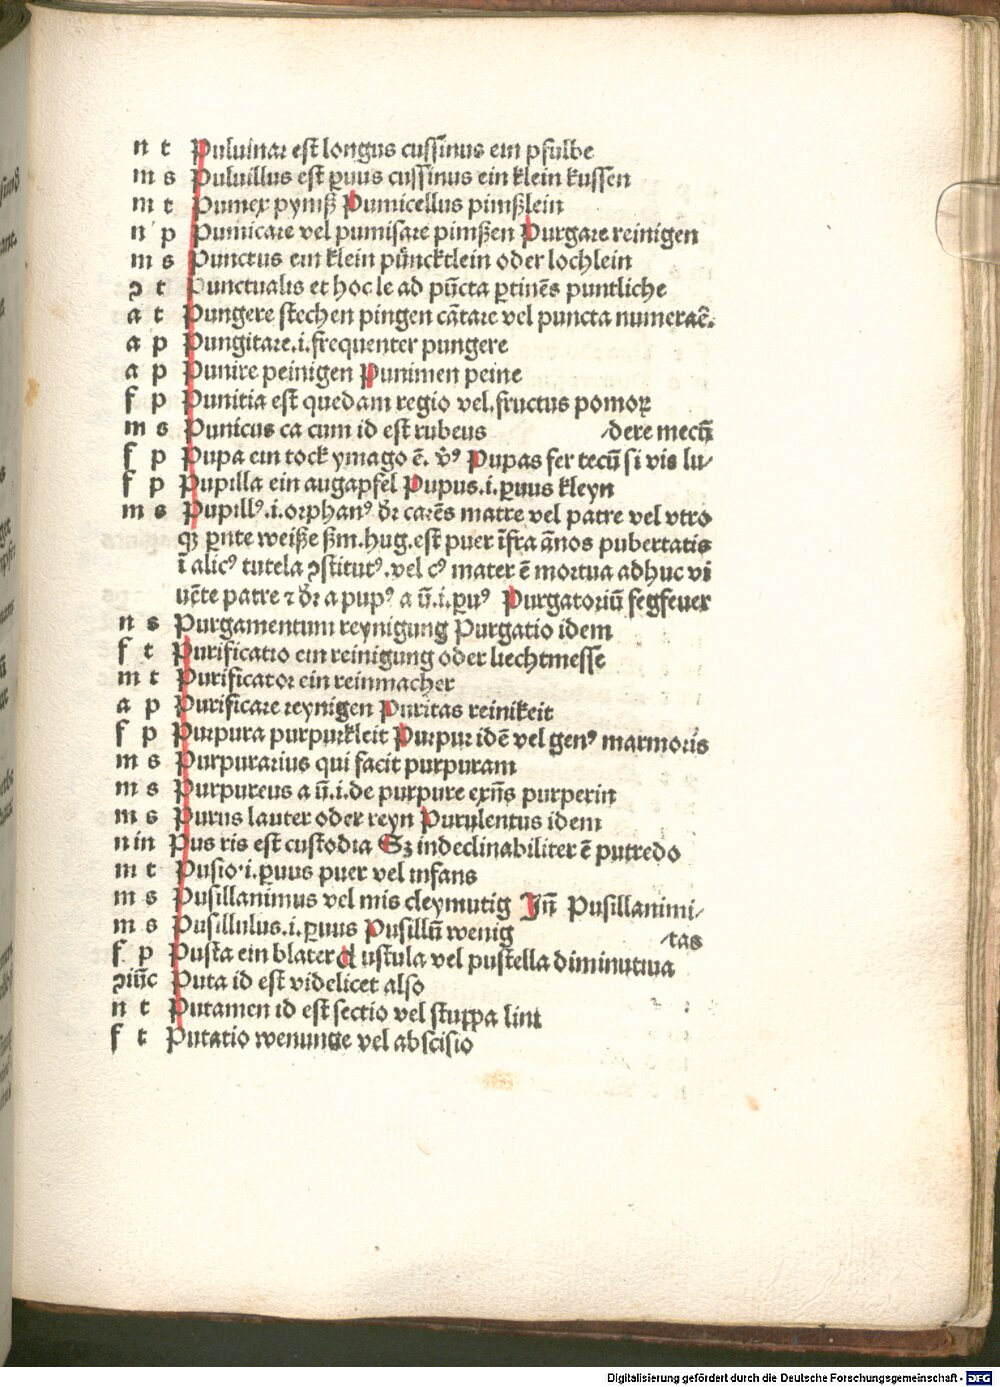 n t Puluinar est longus cussinus ein pfulbe
m s Puluillus est ꝑuus cussinus ein klein kussen
m t Pumex pymß Pumicellus pimßlein
n p Pumicare vel pumisare pimßen Purgare reinigen
m s Punctus ein klein püncktlein oder lochlein
ꝯ t Punctualis et hoc le ad pūcta ꝑtinēs puntliche
a t Pungere stechen pingen cātare vel puncta numeraē.
a p Pungitare.i.frequenter pungere
a p Punire peinigen Punimen peine
f p Punitia est quedam regio vel.fructus pomoꝝ
m s Punicus ca cum id est rubeus ⸝dere mecū
f p Pupa ein tock ymago ē. v̄ꝰ Pupas fer tecū si vis lu⸝
f p Pupilla ein augapfel Pupus.i.ꝑuus kleyn
m s Pupillꝰ.i.orphanꝰ dr̄ carēs matre vel patre vel vtro
qꝫ ꝑnte weiße ßm.hug.est puer īfra ānos pubertatis
ī alicꝰ tutela ꝯstitutꝰ.vel cꝰ mater ē mortua adhuc vi
uēte patre ⁊ dr̄ a pupꝰ a ū.i.ꝑuꝰ Purgatoriū fegfeuer
n s Purgamentum reynigung Purgatio idem
f t Purificatio ein reinigung oder liechtmesse
m t Purificator ein reinmacher
a p Purificare reynigen Puritas reinikeit
f p Purpura purpurkleit Purpur idē vel genꝰ marmoris
m s Purpurarius qui facit purpuram
m s Purpureus a ū.i.de purpure exn̄s purperin
m s Purus lauter oder reyn Purulentus idem
n in Pus ris est custodia Sꝫ indeclinabiliter ē putredo
m t Pusio.i.ꝑuus puer vel infans
m s Pusillanimus vel mis cleymutig Jn̄ Pusillanimi⸝
m s Pusillulus.i.ꝑuus Pusillū wenig ⸝tas
f p Pusta ein blater ustula vel pustella diminutiua
ꝯiūc Puta id est videlicet also
n t Putamen id est sectio vel stuppa lini
f t Putatio wenunge vel abscisio
Digitalisierung gefördert durch die Deutsche Forschungsgemeinschaft - DFG